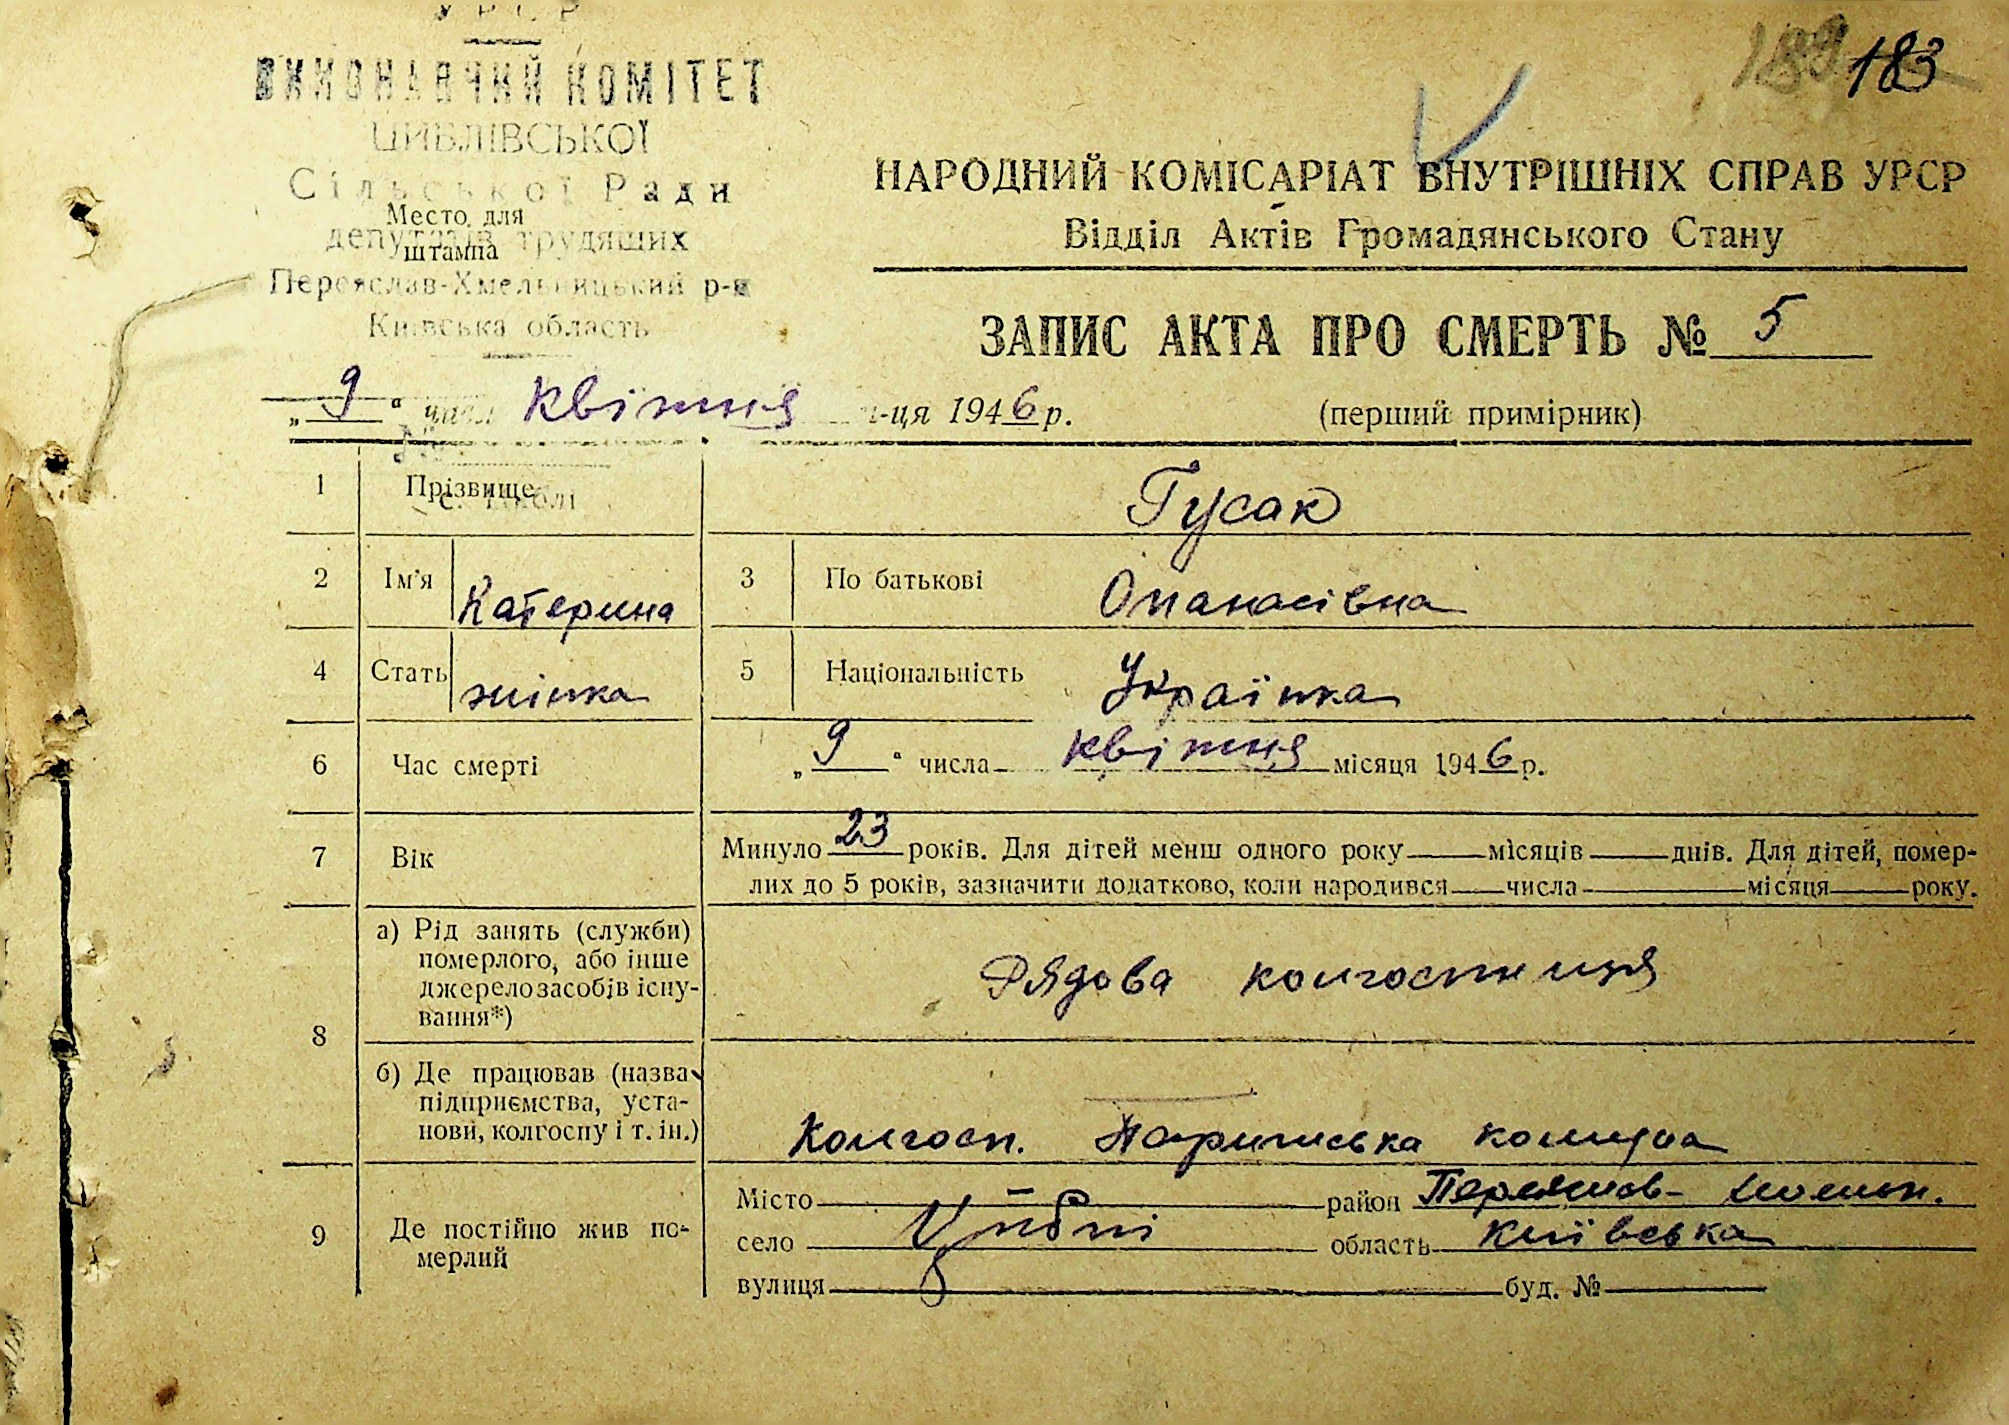 УРСР
ВИКОНАВЧИЙ КОМІТЕТ
ЦИБЛІВСЬКОЇ
Сільської Ради
депутатів трудящих
Переяслав-Хмельницький р-н
Київська область
Место для
штампа
с. Циблі
189 183
НАРОДНИЙ КОМІСАРІАТ ВНУТРІШНІХ СПРАВ УРСР
Відділ Актів Громадянського Стану
ЗАПИС АКТА ПРО СМЕРТЬ № 5
„ 9 “ числа квітня м-ця 1946 р.
(перший примірник)
1 Прізвище Гусак
2 Ім'я Катерина 3 По батькові Опанасівна
4 Стать жінка 5 Національність Українка
6 Час смерті „ 9 “ числа квітня місяця 1946 р.
7 Вік Минуло 23 років. Для дітей менш одного року місяців днів. Для дітей, помер-
лих до 5 років, зазначити додатково, коли народився числа місяця року.
8 а) Рід занять (служби)
померлого, або інше
джерело засобів існу-
вання*)
Рядова колгоспниця
б) Де працював (назва
підприємства, уста-
нови, колгоспу і т. ін.)
Колгосп. Паризська комуна
9 Де постійно жив по-
мерлий
Місто — район Переяслов-Хмельн.
село Циблі область Київська
вулиця буд. №